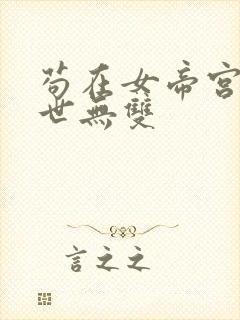 苟在女帝宮
世無雙
言之之